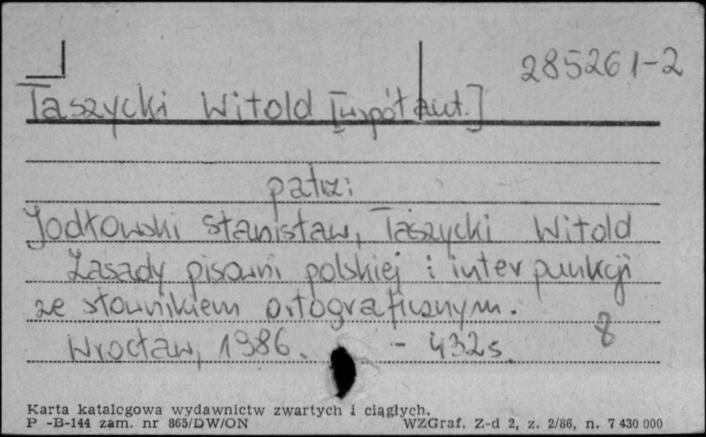 285261-2
Taszycki Witold [współaut.]
patrz:
Jodłowski Stanisław, Taszycki Witold
Zasady pisowni polskiej i interpunkcji
ze słownikiem ortograficznym.
8
Wrocław, 1986. - 432s.
Karta katalogowa wydawnictw zwartych i ciągłych.
P -B-144 zam. nr 865/DW/ON WZGraf. Z-d 2, z. 2/86, n. 7 430 000